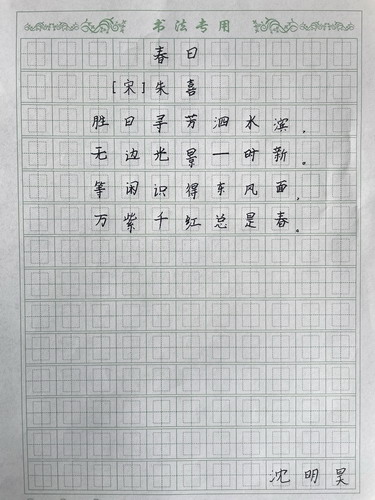 书法专用
春日
[宋]朱喜
胜日寻芳泗水滨,
无边光景一时新。
等闲识得东风面,
万紫千红总是春。
沈明昊